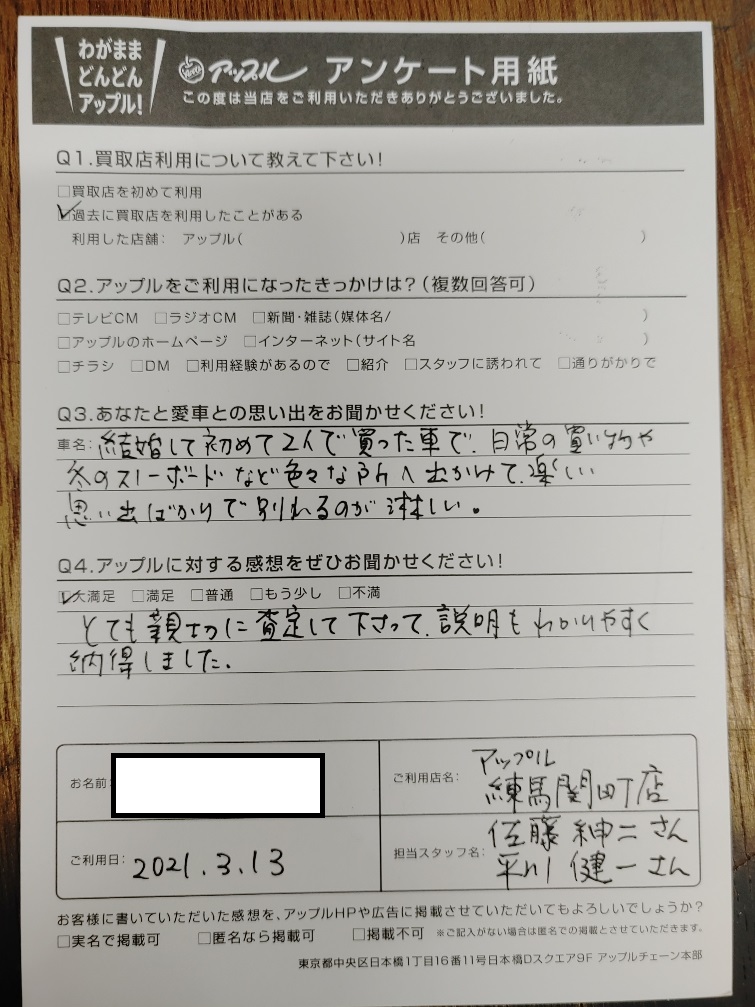 わがまま
どんどん
アップル!
アップル アンケート用紙
この度は当店をご利用いただきありがとうございました。
Q1.買取店利用について教えて下さい!
□買取店を初めて利用
☑過去に買取店を利用したことがある
利用した店舗: アップル( )店 その他( )
Q2.アップルをご利用になったきっかけは?(複数回答可)
□テレビCM □ラジオCM □新聞・雑誌(媒体名/ )
□アップルのホームページ □インターネット(サイト名 )
□チラシ □DM □利用経験があるので □紹介 □スタッフに誘われて □通りがかりで
Q3.あなたと愛車との思い出をお聞かせください!
車名: 結婚して初めて2人で買った車で、日常の買い物や
冬のスノーボードなど色々な所へ出かけて、楽しい
思い出ばかりで別れるのが淋しい。
Q4.アップルに対する感想をぜひお聞かせください!
☑大満足 □満足 □普通 □もう少し □不満
とても親切に査定して下さって、説明もわかりやすく
納得しました。
お名前:
ご利用店名: アップル
練馬関町店
ご利用日: 2021.3.13
担当スタッフ名: 佐藤 紳二さん
平川 健一さん
お客様に書いていただいた感想を、アップルHPや広告に掲載させていただいてもよろしいでしょうか?
□実名で掲載可 □匿名なら掲載可 □掲載不可 ※ご記入がない場合は匿名での掲載とさせていただきます。
東京都中央区日本橋1丁目16番11号日本橋Dスクエア9F アップルチェーン本部